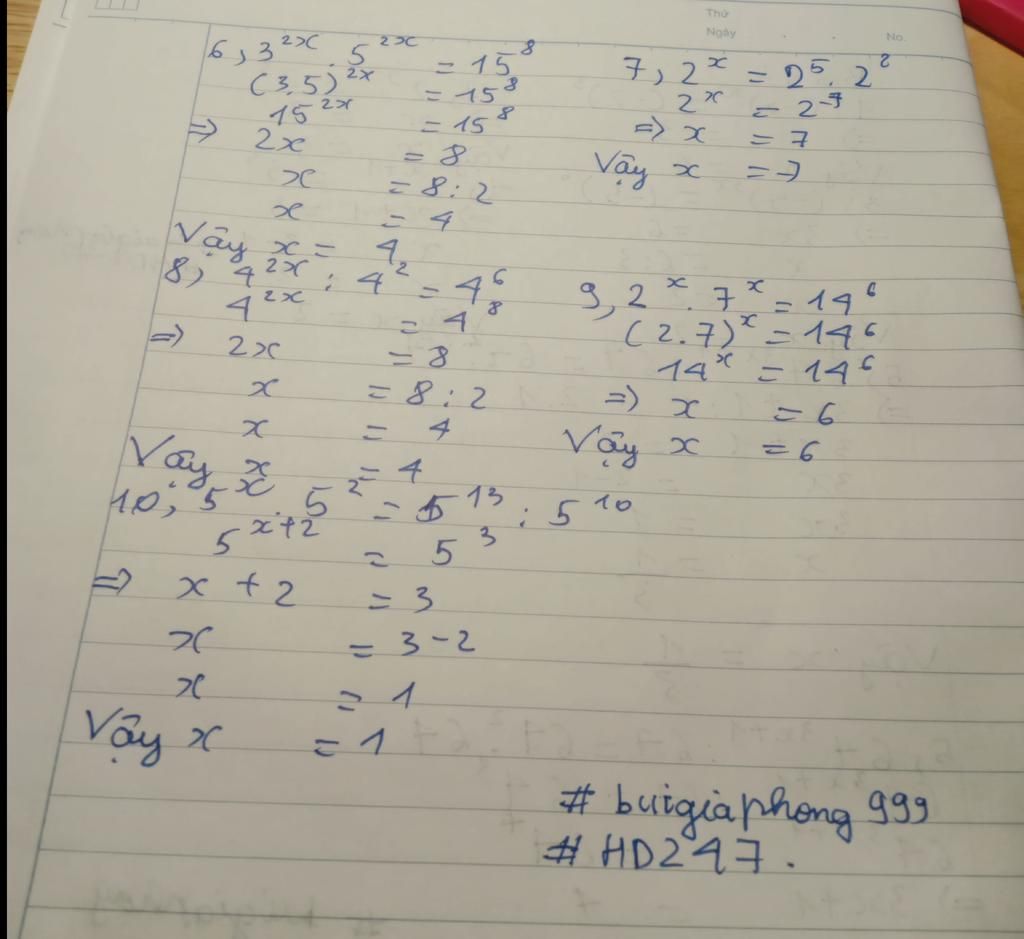 Thứ
Ngày . . No.
6, 3^2x . 5^2x = 15^8
(3.5)^2x = 15^8
15^2x = 15^8
=> 2x = 8
x = 8 : 2
x = 4
Vậy x = 4
7, 2^x = 2^5 . 2^2
2^x = 2^7
=> x = 7
Vậy x = 7
8, 4^2x : 4^2 = 4^6
4^2x = 4^8
=> 2x = 8
x = 8 : 2
x = 4
Vậy x = 4
9, 2^x . 7^x = 14^6
(2.7)^x = 14^6
14^x = 14^6
=> x = 6
Vậy x = 6
10, 5^x . 5^2 = 5^13 : 5^10
5^x+2 = 5^3
=> x + 2 = 3
x = 3 - 2
x = 1
Vậy x = 1
# buigiaphong 999
# HD247.